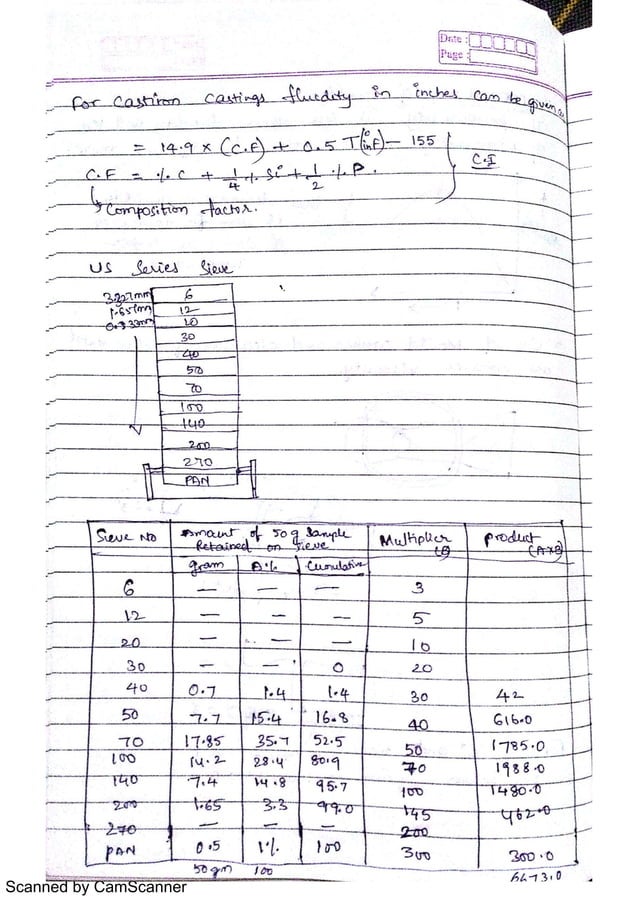 Date :
Page :
For Castiron Castings fluidity in inches can be given
= 14.9 × (C.F) + 0.5 T (in °F) – 155
C.I
C.F = % C + 1/4 % Si + 1/2 % P.
↳ Composition factor.
US Series Sieve
3.327mm 6
1.651mm 12
0.833mm 20
30
40
50
70
100
140
200
270
PAN
Sieve No Amount of 50g Sample Retained on Sieve Multiplier (B) Product (A×B)
gram A% Cumulative
6 — — — 3
12 — — — 5
20 — — — 10
30 — — 0 20
40 0.7 1.4 1.4 30 42
50 7.7 15.4 16.8 40 616.0
70 17.85 35.7 52.5 50 1785.0
100 14.2 28.4 80.9 70 1988.0
140 7.4 14.8 95.7 100 1480.0
200 1.65 3.3 99.0 145 462.0
270 — — — 200
PAN 0.5 1% 100 300 300.0
50gm 100 6673.0
Scanned by CamScanner